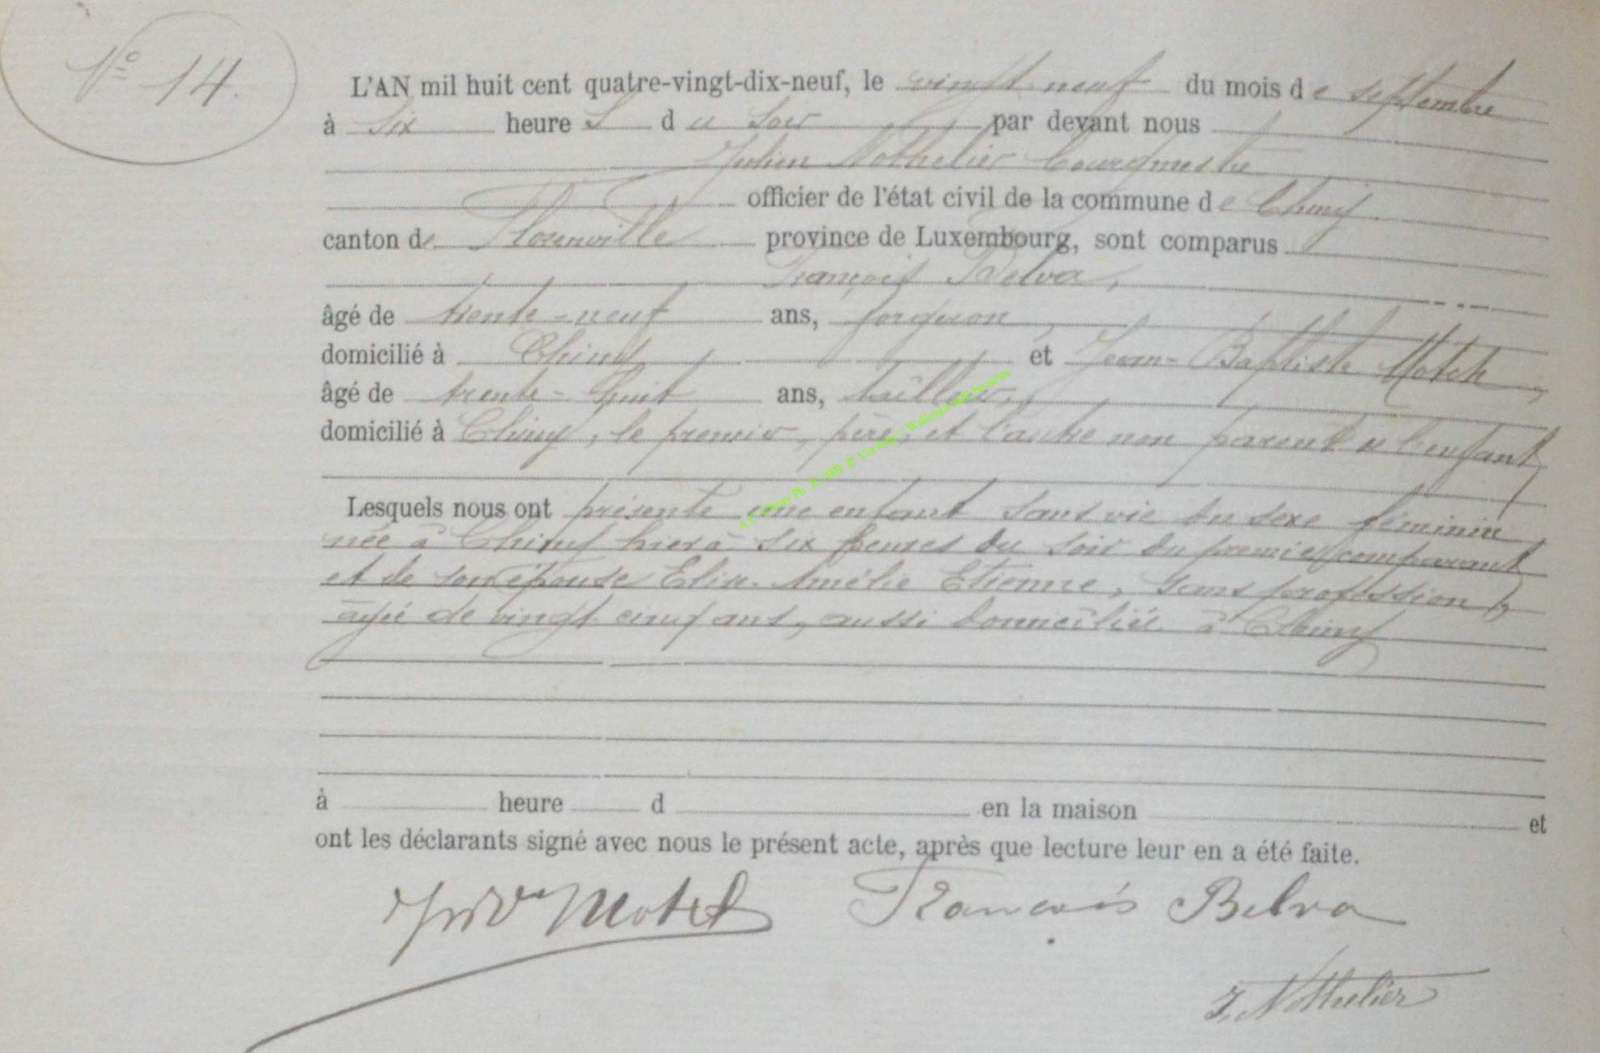 N° 14.
L'AN mil huit cent quatre-vingt-dix-neuf, le vingt neuf du mois de septembre
à six heure s du soir par devant nous
Julien Nothelier bourgmestre
officier de l'état civil de la commune de Chiny
canton de Florenville province de Luxembourg, sont comparus
François Belva,
âgé de trente-neuf ans, forgeron,
domicilié à Chiny et Jean-Baptiste Motch,
âgé de trente-huit ans, tailleur,
domicilié à Chiny, le premier, père, et l'autre non parent de l'enfant,
Lesquels nous ont présenté une enfant sans vie du sexe féminin
née à Chiny hier à six heures du soir du premier comparant
et de son épouse Elise-Amélie Etienne, sans profession,
âgée de vingt cinq ans, aussi domiciliée à Chiny
à heure d en la maison et
ont les déclarants signé avec nous le présent acte, après que lecture leur en a été faite.
Motch François Belva
J. Nothelier